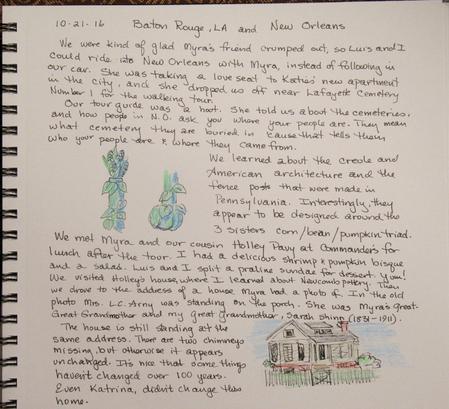 10-21-16 Baton Rouge, LA and New Orleans
We were kind of glad Myra's friend crumped out, so Luis and I
could ride into New Orleans with Myra, instead of following in
our car. She was taking a love seat to Katie's new apartment
in the city, and she dropped us off near Lafayette Cemetery
Number 1 for the walking tour.
Our tour guide was a hoot. She told us about the cemeteries,
and how people in N.O. ask you where your people are. They mean
what cemetery they are buried in 'cause that tells them
who your people are & where they came from.
We learned about the creole and
American architecture and the
fence posts that were made in
Pennsylvania. Interestingly, they
appear to be designed around the
3 sisters corn/bean/pumpkin triad.
We met Myra and our cousin Holley Pavy at Commander's for
lunch after the tour. I had a delicious shrimp & pumpkin bisque
and a salad. Luis and I split a praline sundae for dessert. Yum!
We visited Holley's house, where I learned about Newcomb pottery. Then
we drove to the address of a house Myra had a photo of. In the old
photo Mrs. L.C. Arny was standing on the porch. She was Myra's Great-
Great Grandmother and my great grandmother, Sarah Shinn (1831-1911).
The house is still standing at the
same address. There are two chimneys
missing, but otherwise it appears
unchanged. It's nice that some things
haven't changed over 100 years.
Even Katrina, didn't change this
home.